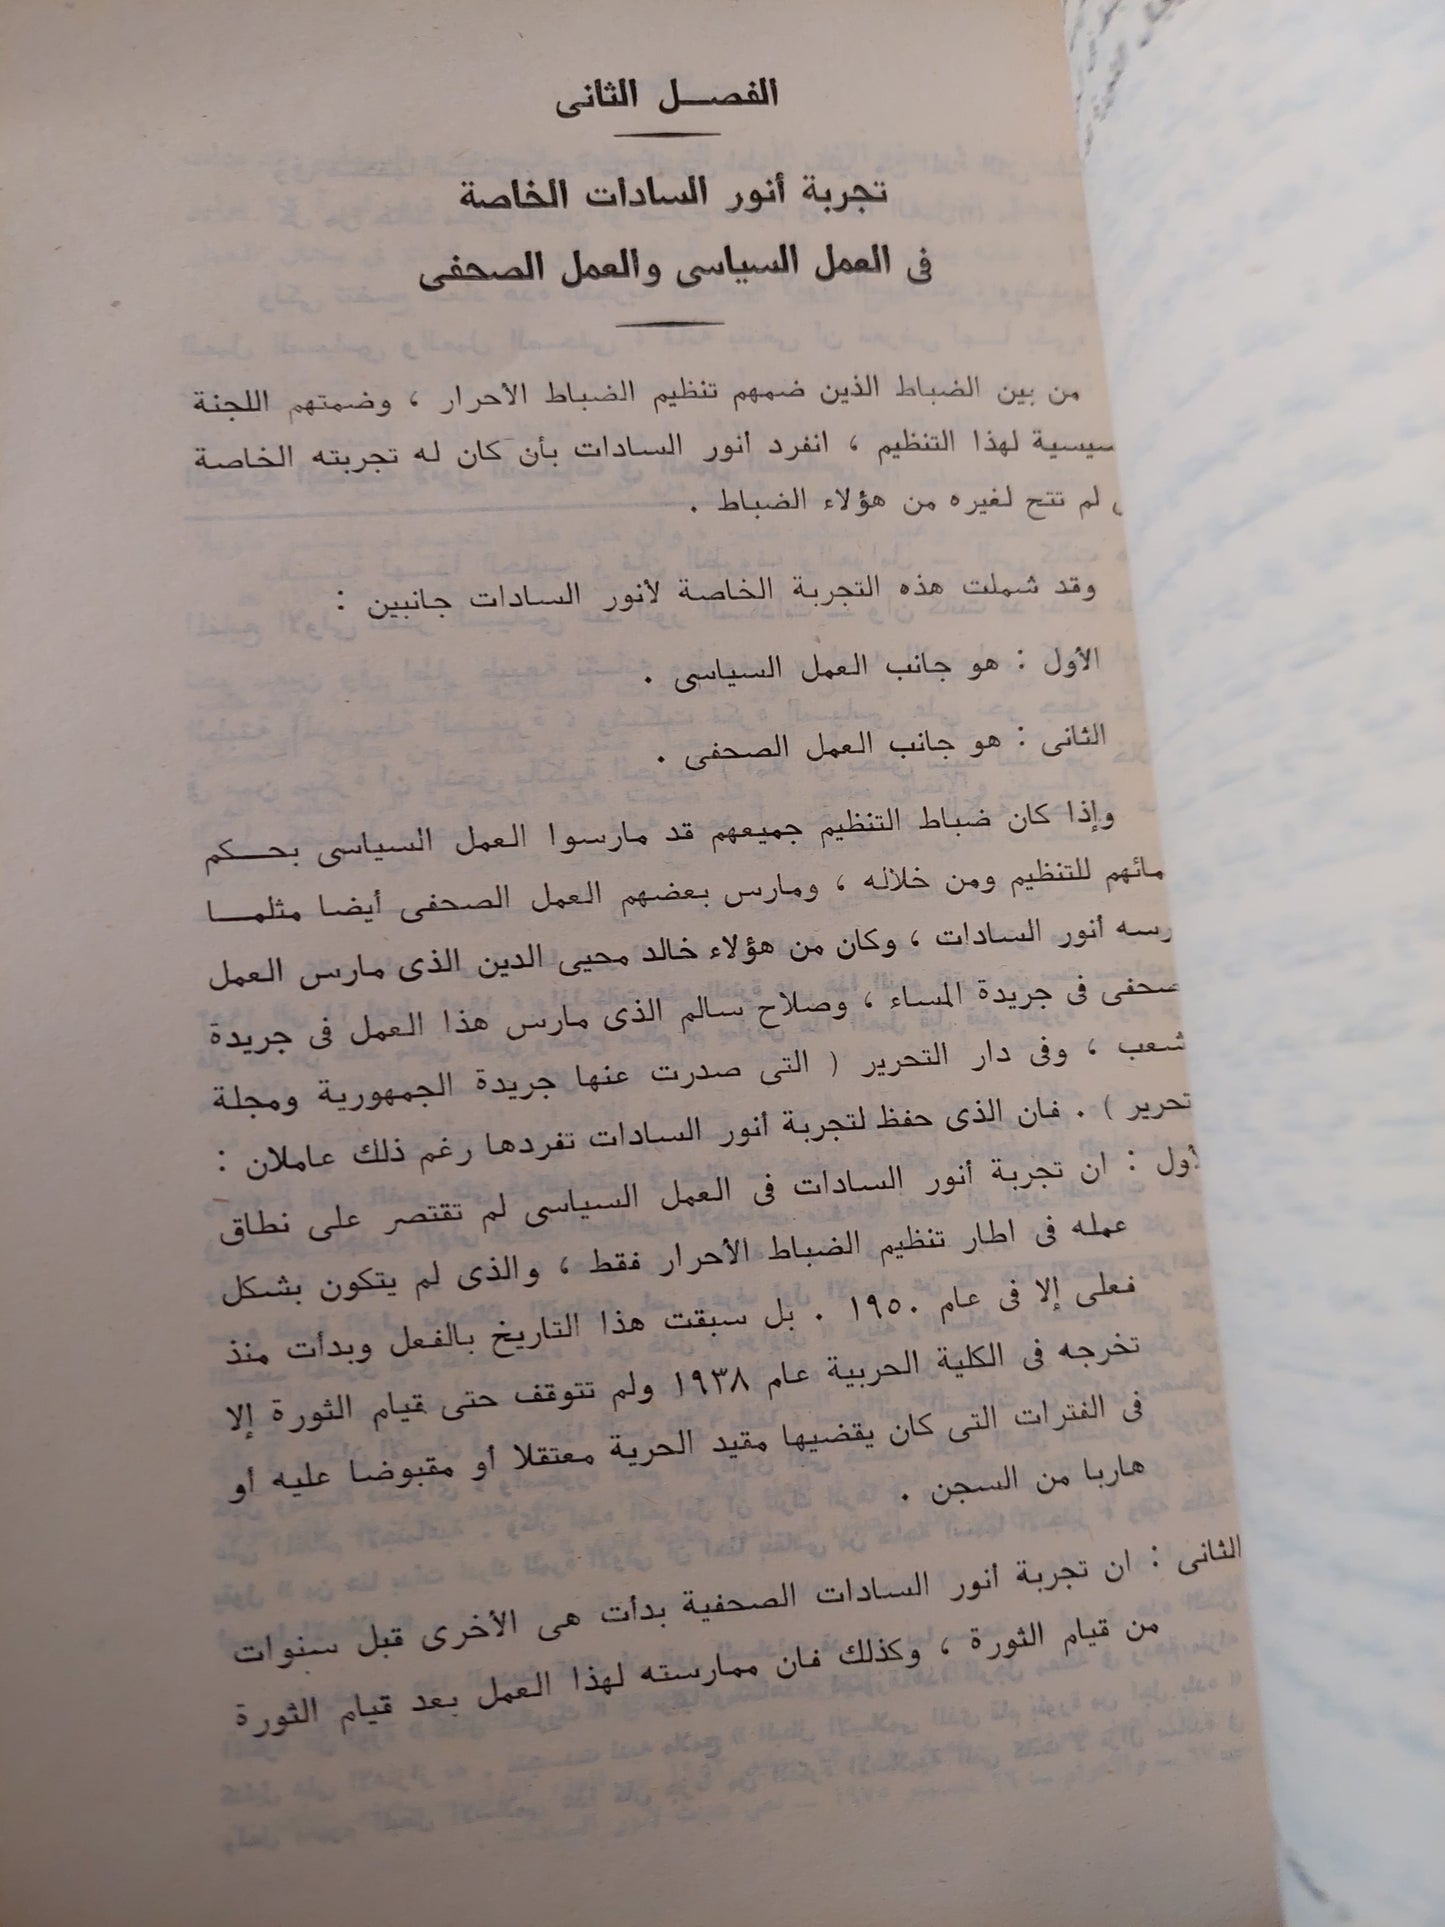 الفصل الثانى
تجربة أنور السادات الخاصة
فى العمل السياسى والعمل الصحفى
من بين الضباط الذين ضمهم تنظيم الضباط الأحرار ، وضمتهم اللجنة
سيسية لهذا التنظيم ، انفرد أنور السادات بأن كان له تجربته الخاصة
لم تتح لغيره من هؤلاء الضباط .
وقد شملت هذه التجربة الخاصة لأنور السادات جانبين :
الأول : هو جانب العمل السياسى .
الثانى : هو جانب العمل الصحفى .
وإذا كان ضباط التنظيم جميعهم قد مارسوا العمل السياسى بحكم
مائهم للتنظيم ومن خلاله ، ومارس بعضهم العمل الصحفى أيضا مثلما
رسه أنور السادات ، وكان من هؤلاء خالد محيى الدين الذى مارس العمل
صحفى فى جريدة المساء ، وصلاح سالم الذى مارس هذا العمل فى جريدة
شعب ، وفى دار التحرير ( التى صدرت عنها جريدة الجمهورية ومجلة
تحرير ) . فان الذى حفظ لتجربة أنور السادات تفردها رغم ذلك عاملان :
أول : ان تجربة أنور السادات فى العمل السياسى لم تقتصر على نطاق
عمله فى اطار تنظيم الضباط الأحرار فقط ، والذى لم يتكون بشكل
فعلى إلا فى عام ١٩٥٠ . بل سبقت هذا التاريخ بالفعل وبدأت منذ
تخرجه فى الكلية الحربية عام ١٩٣٨ ولم تتوقف حتى قيام الثورة إلا
فى الفترات التى كان يقضيها مقيد الحرية معتقلا أو مقبوضا عليه أو
هاربا من السجن .
الثانى : ان تجربة أنور السادات الصحفية بدأت هى الأخرى قبل سنوات
من قيام الثورة ، وكذلك فان ممارسته لهذا العمل بعد قيام الثورة